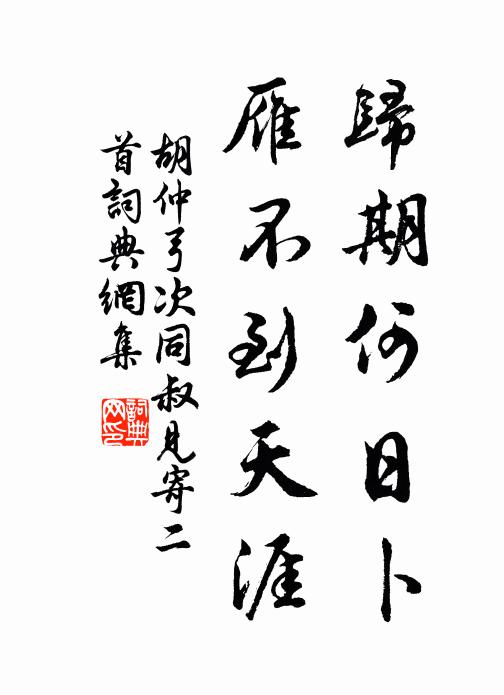 歸期何日卜
雁不到天涯
胡仲弓次同叔見寄二
首詞典網集
詞典
网印